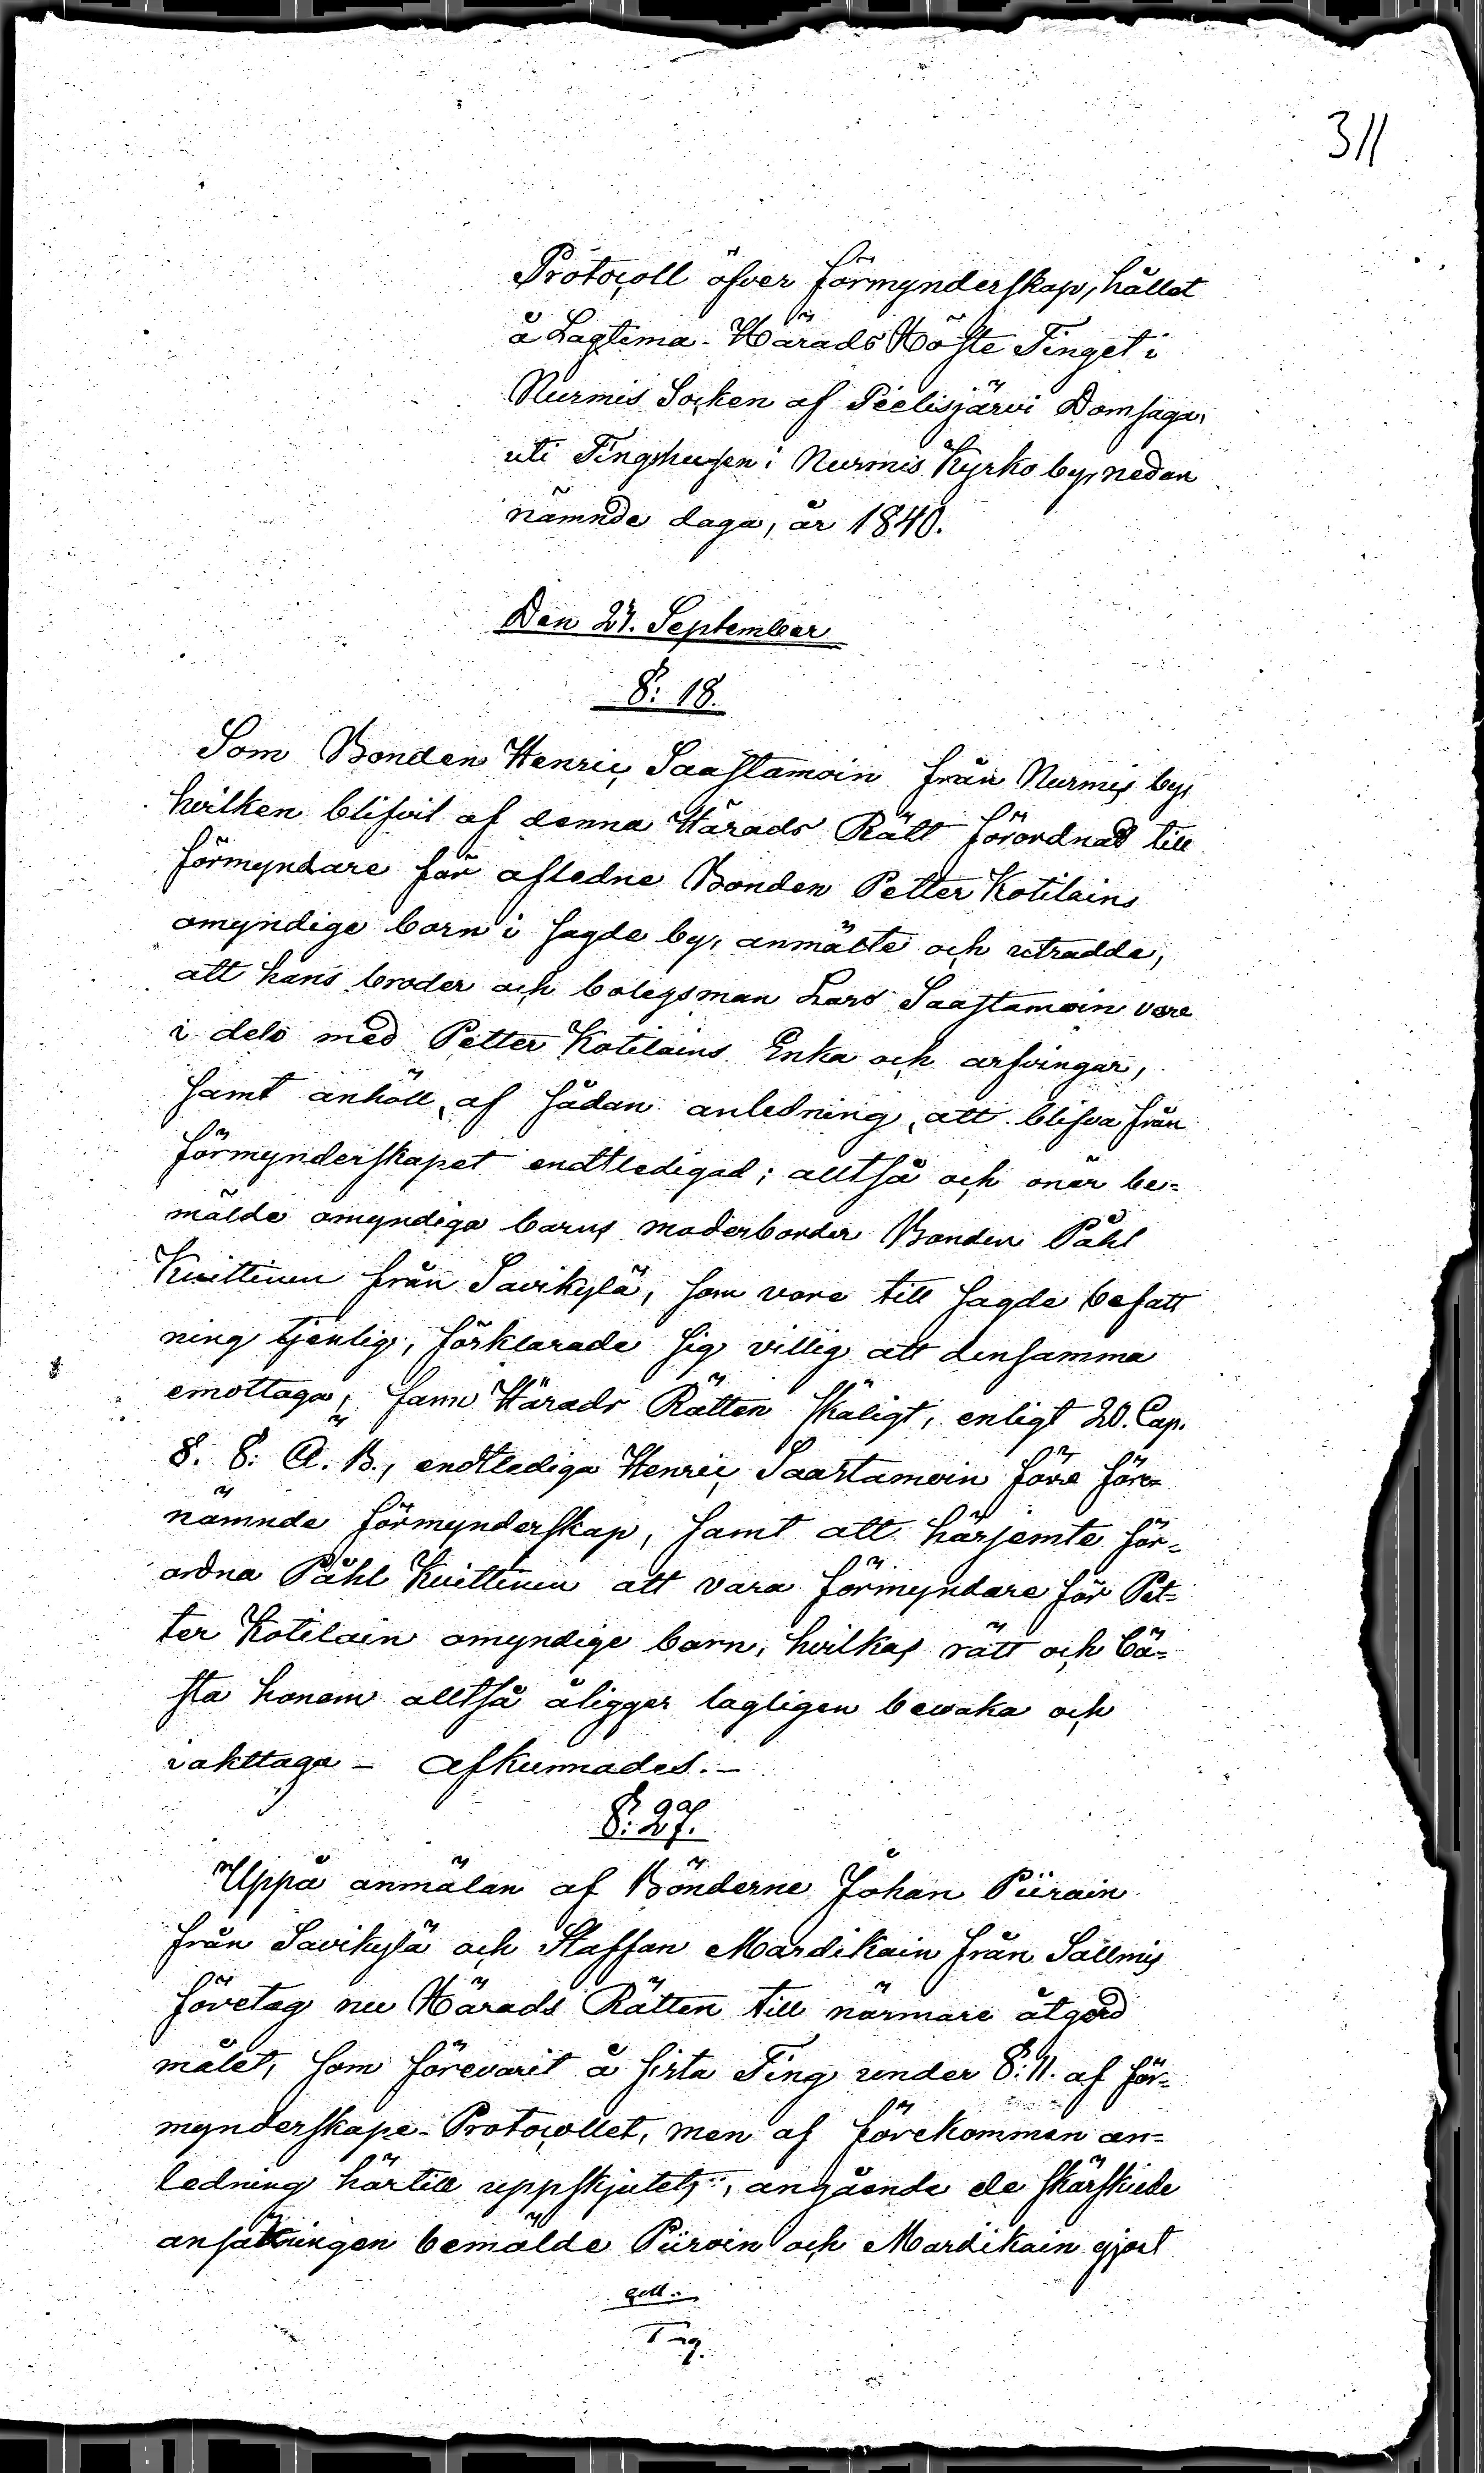 311
Protocoll öfver förmynderskap, hållet
å Lagtima Härads Höste Tinget i
Nurmis Socken af Pielisjärvi Domsaga,
uti Tingshusen i Nurmis Kyrko by, nedan
nämnde daga, år 1840.
Den 21. September
§: 18.
Som Bonden Henric Saastamoin från Nurmis by,
hvilken blifvit af denna Härads Rätt förordnad till
förmyndare för afledne Bonden Petter Kotilains
omyndige barn i sagde by, anmälte och utradde,
att hans broder och bolagsman Lars Saastamoin vore
i delo med Petter Kotilains Enka och arfvingar,
samt anhöll, af sådan anledning, att blifva från
förmynderskapet endtledigad; alltså och enär be=
mälde omyndiga barns moderborder Bonden Påhl
Kuittinen från Savikylä, som vore till sagde befatt
ning tjenlig, förklarade sig villig att densamma
emottaga, fann Härads Rätten skäligt, enligt 20. Cap.
8. §: Ä. B., endtlediga Henric Saastamoin före före=
nämnde förmynderskap, samt att härjemte för=
ordna Påhl Kuittinen att vara förmyndare för Pet=
ter Kotilain omyndige barn, hvilkas rätt och bä=
sta honom alltså åligger lagligen bewaka och
iakttaga – afkunnades. –
§: 27.
Uppå anmälan af Bönderne Johan Piirain
från Savikylä och Staffan Mardikain från Salmis
företog nu Härads Rätten till närmare åtgerd
målet, som förevarit å sista Ting under §: 11. af för=
mynderskaps-Protocollet, men af förekommen an=
ledning härtill uppskjutets, angående de särskilde
ansökningen bemälde Piiroin och Mardikain gjort